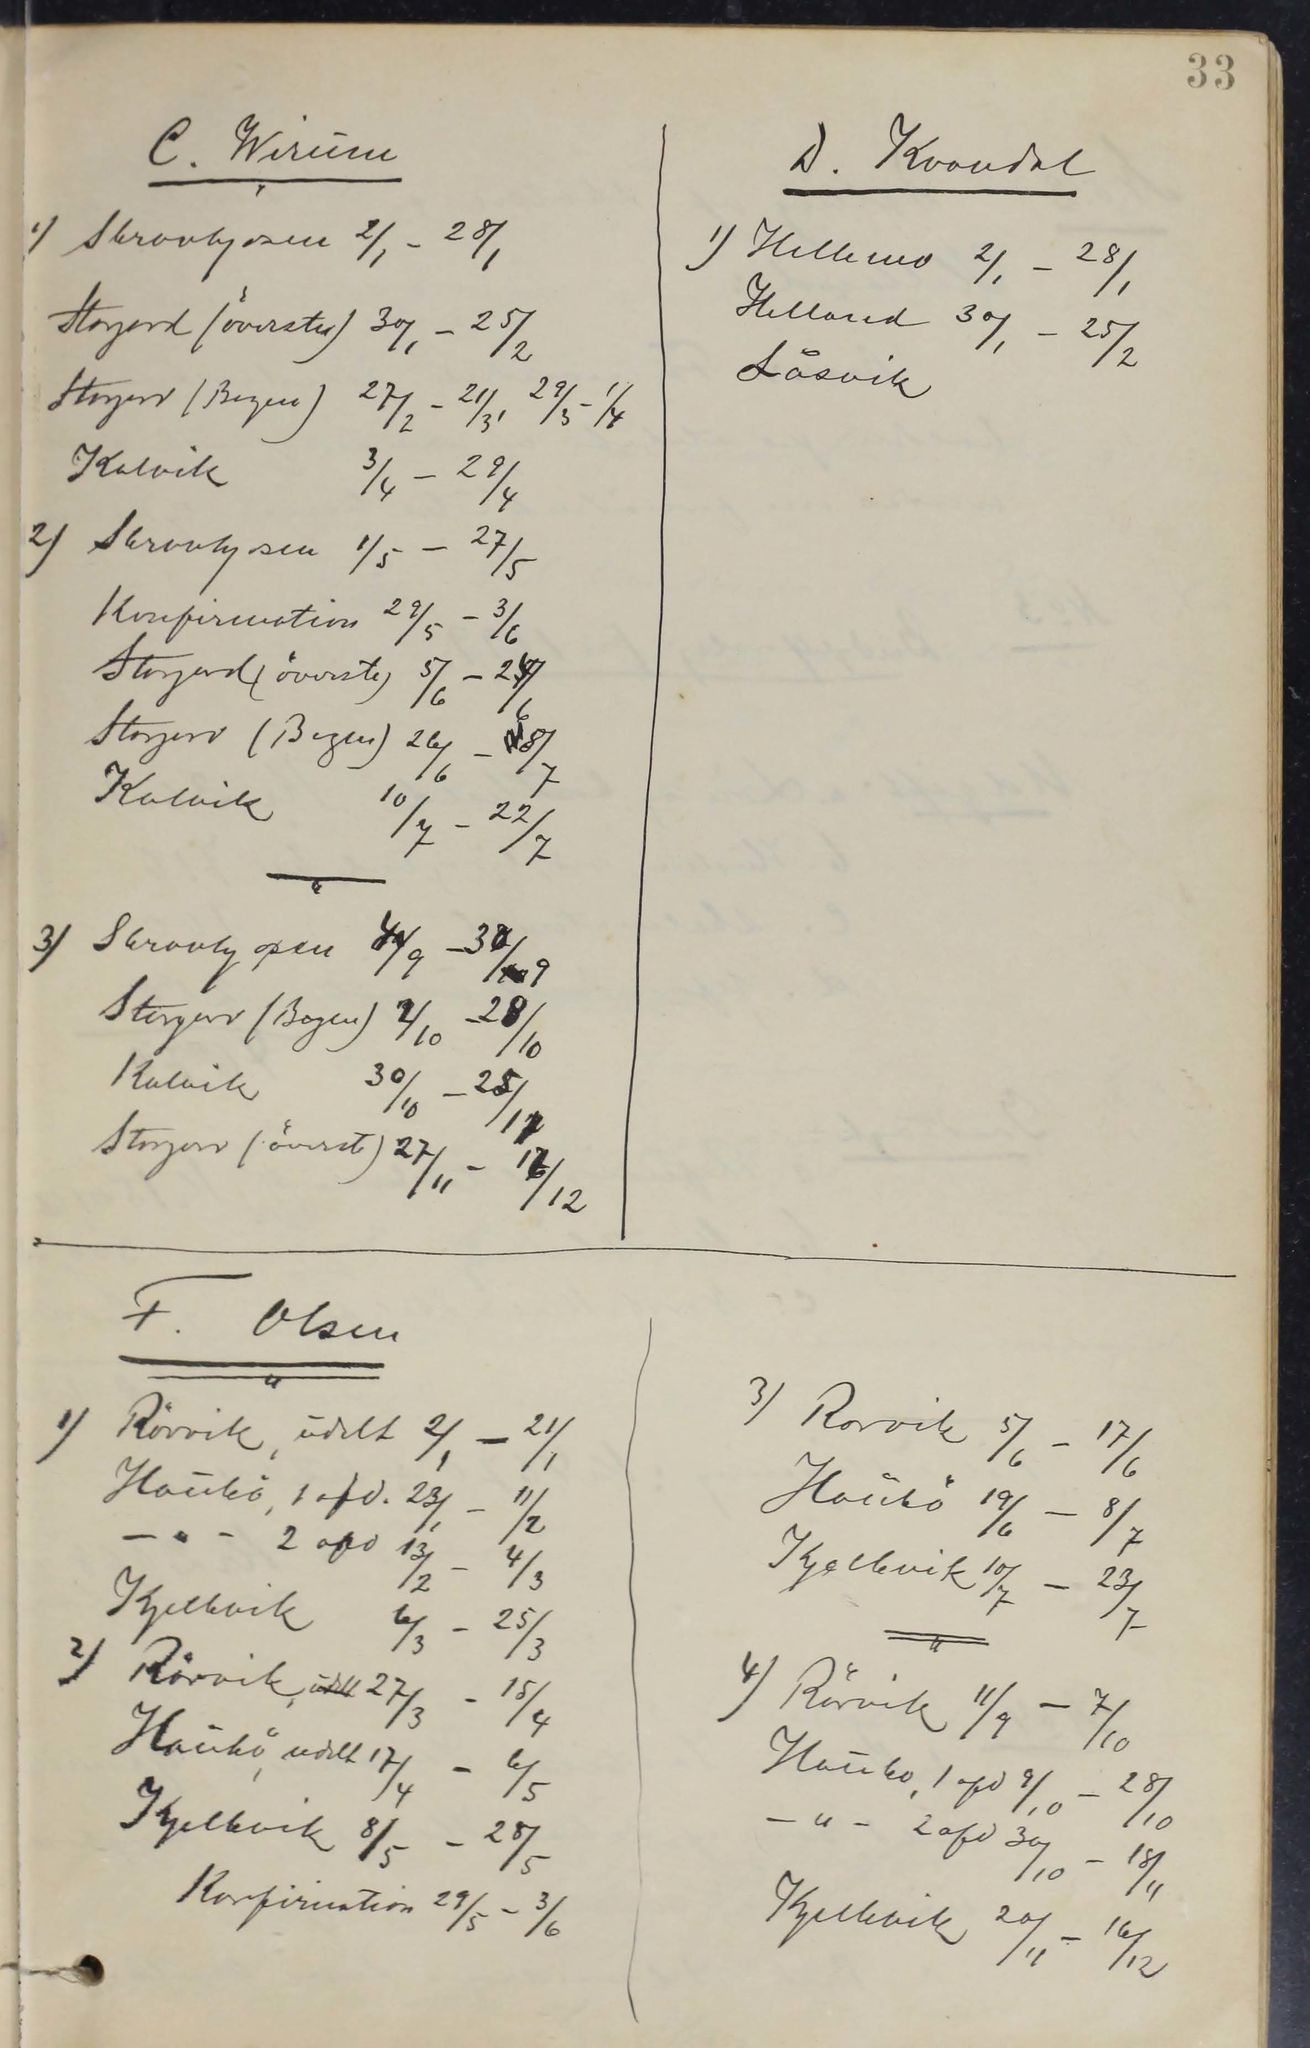 33
C. Wirum
1) Skrovkjosen 2/1 - 28/1
Storjord (överste) 30/1 - 25/2
Storjord (Bogen) 27/2 - 21/3, 29/3 - 1/4
Kalvik 3/4 - 29/4
2) Skrovkjosen 1/5 - 27/5
Konfirmation 29/5 - 3/6
Storjord (överste) 5/6 - 24/6
Storjord (Bogen) 26/6 - 8/7
Kalvik 10/7 - 22/7
3) Skrovkjosen 4/9 - 30/9
Storjord (Bogen) 2/10 - 28/10
Kalvik 30/10 - 25/11
Storjord (överste) 27/11 - 16/12
D. Kvandal
1) Hellemo 2/1 - 28/1
Helland 30/1 - 25/2
Låsvik
F. Olsen
1) Rörvik, udelt 2/1 - 21/1
Haukö, 1 afd. 23/1 - 11/2
- " - 2 afd 13/2 - 4/3
Kjelkvik 6/3 - 25/3
2) Rörvik, udelt 27/3 - 15/4
Haukö, udelt 17/4 - 6/5
Kjelkvik 8/5 - 28/5
Konfirmation 29/5 - 3/6
3) Rorvik 5/6 - 17/6
Haukö 19/6 - 8/7
Kjelkvik 10/7 - 23/7
4) Rörvik 11/9 - 7/10
Hauko, 1 afd 9/10 - 28/10
- " - 2 afd 30/10 - 18/11
Kjelkvik 20/11 - 16/12